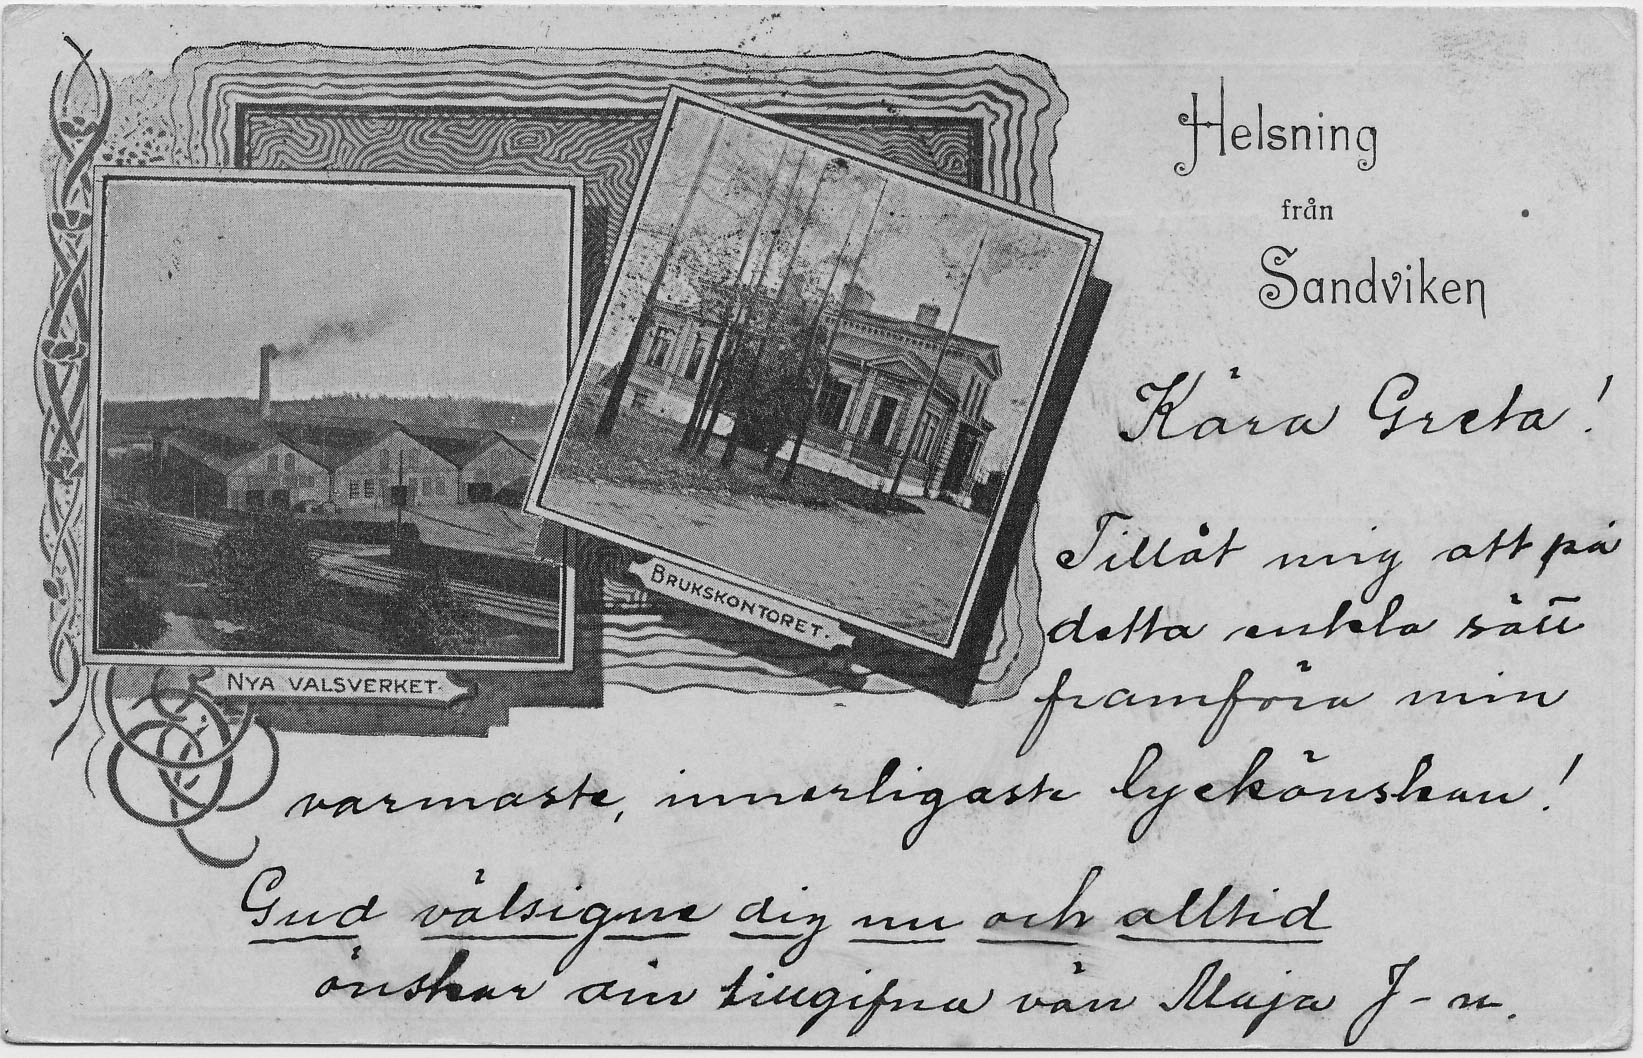 Helsning
från
Sandviken
NYA VALSVERKET.
BRUKSKONTORET.
Kära Greta!
Tillåt mig att på
detta enkla sätt
framföra min
varmaste, innerligaste lyckönskan!
Gud välsigne dig nu och alltid
önskar din tillgifna vän Maja J-n.